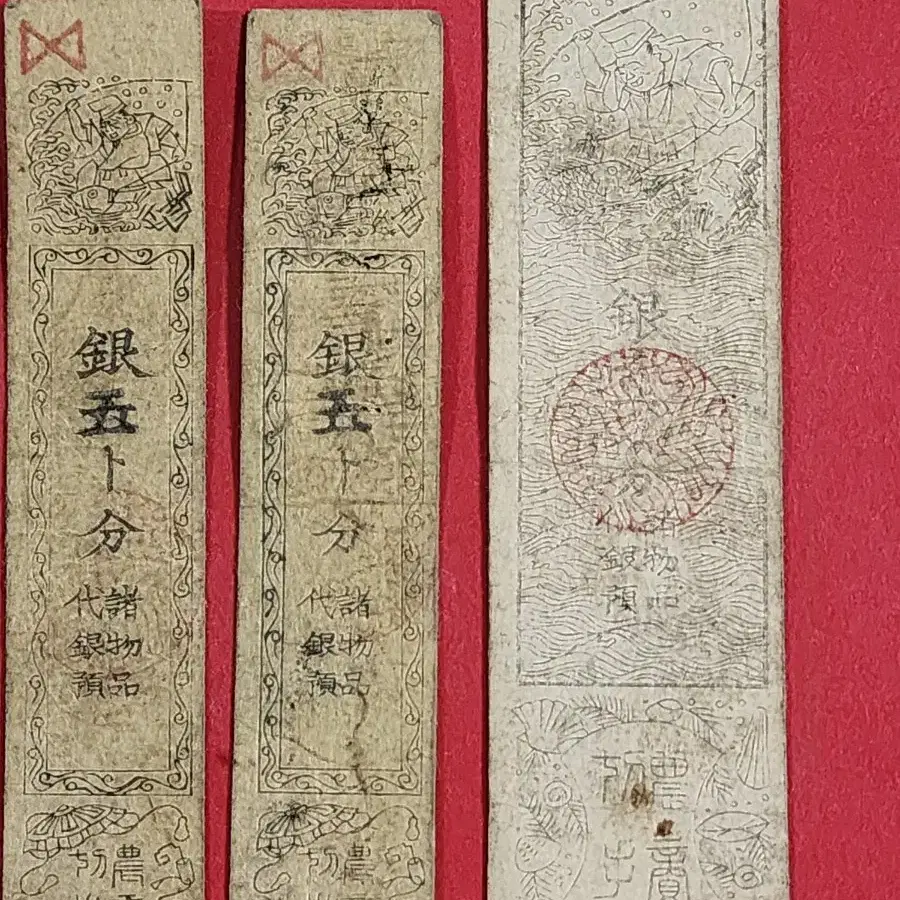 銀五卜分
諸物品
代銀預
農
切
銀五卜分
諸物品
代銀預
農
切
銀
分
諸物品
銀預
農
切手